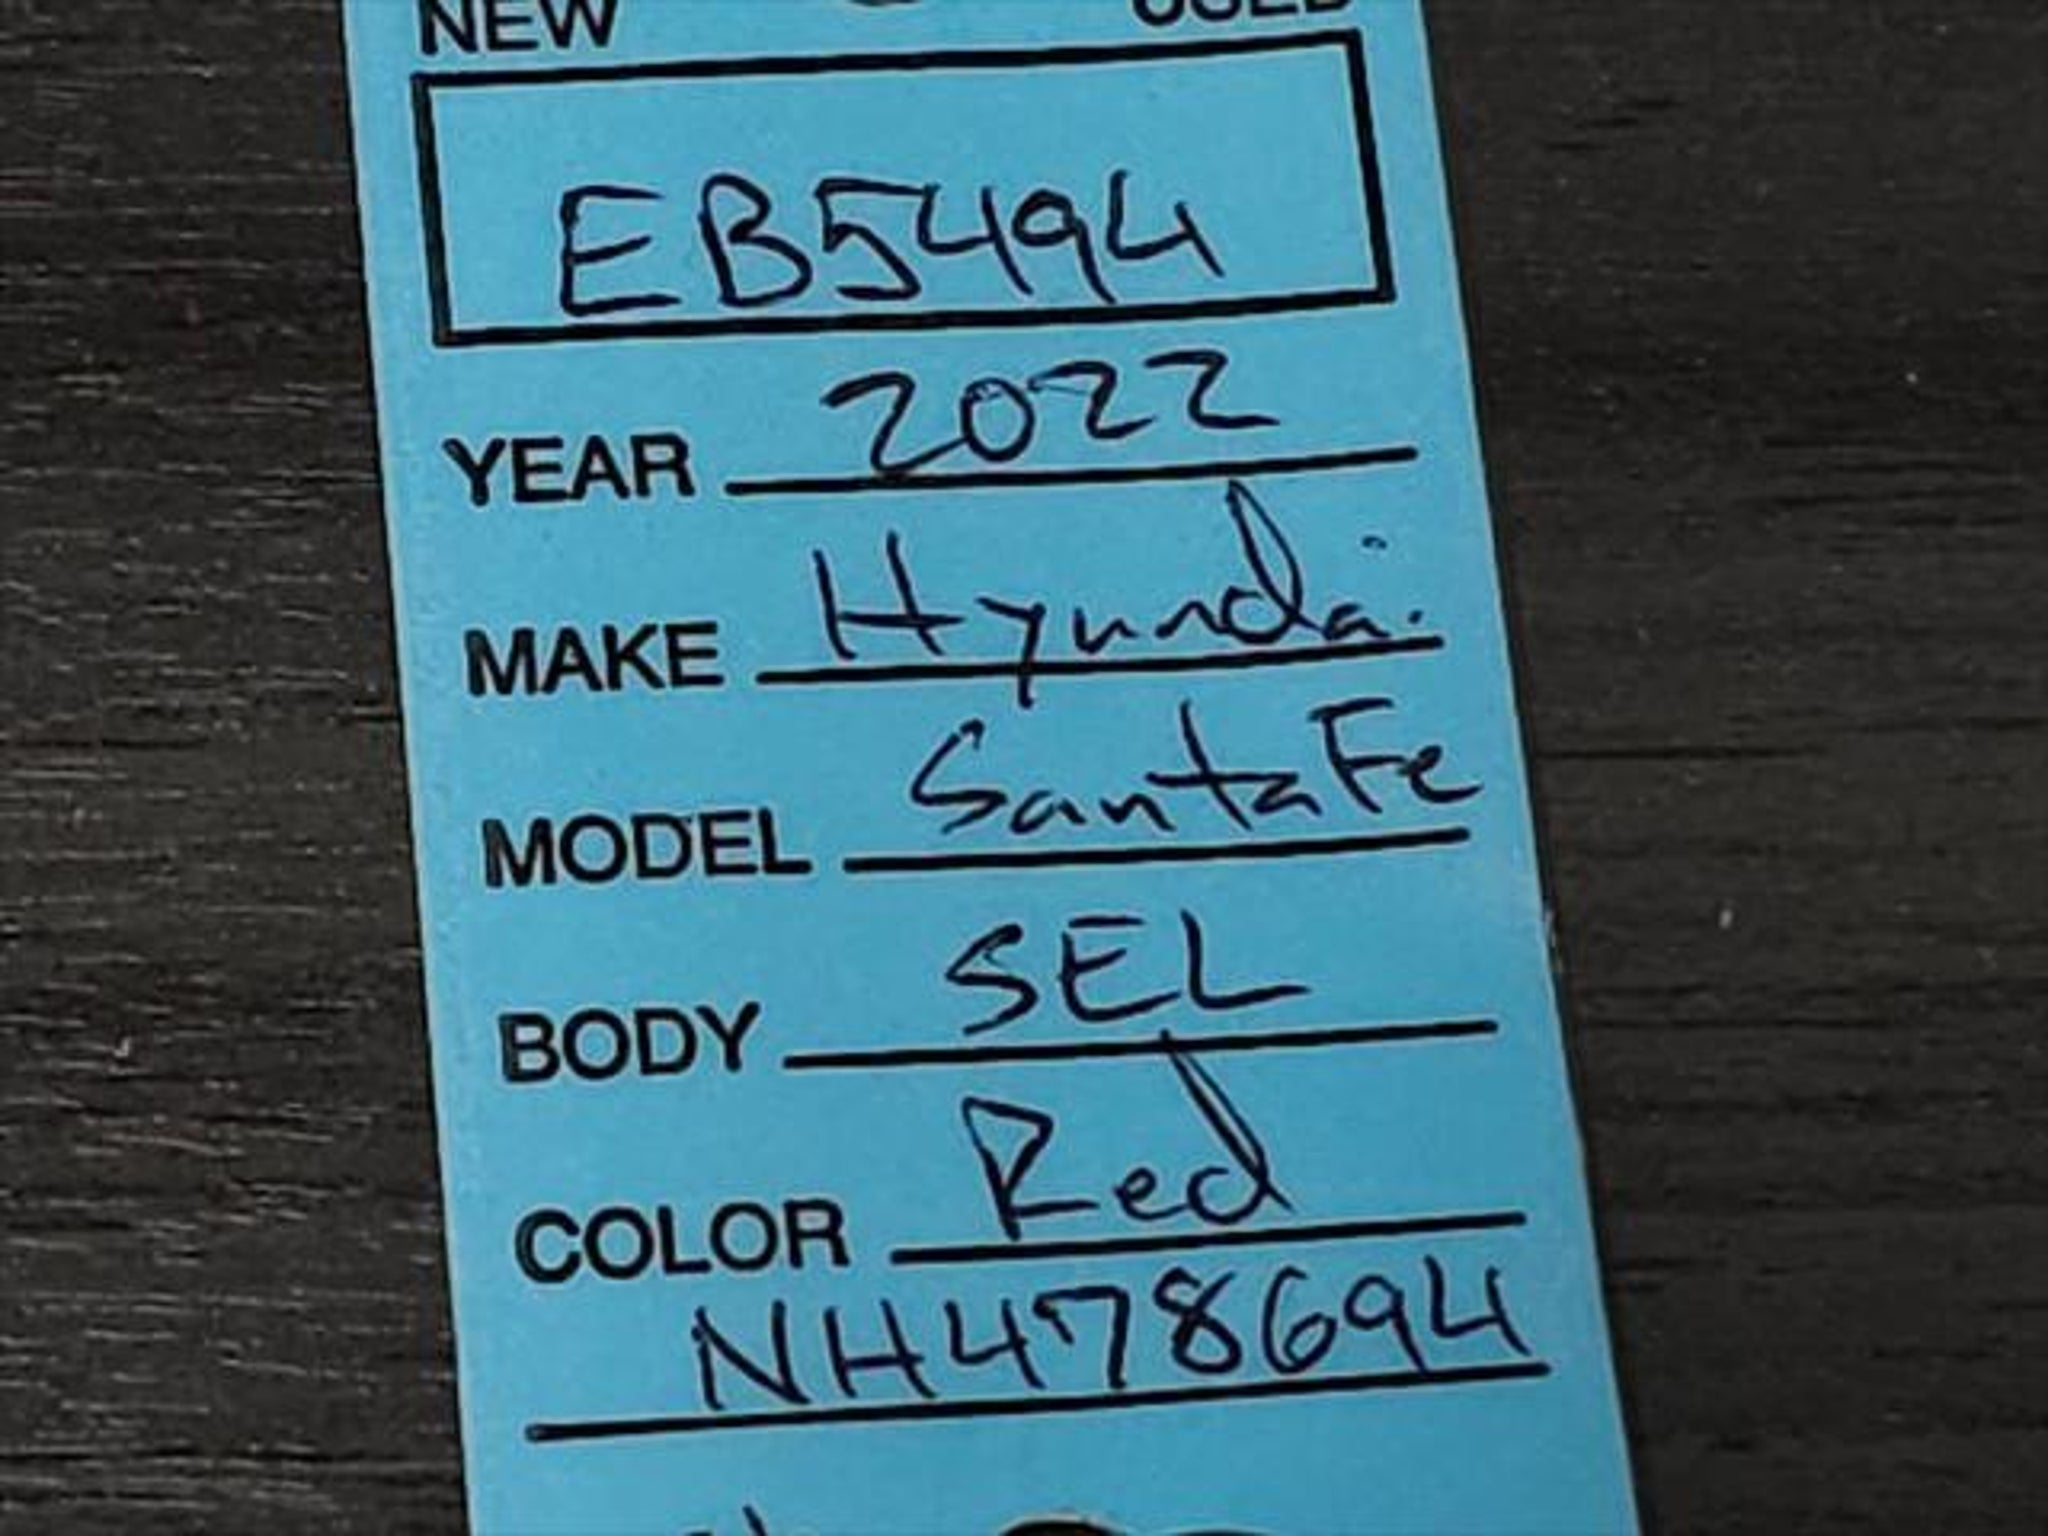 NEW USED
EB5494
YEAR 2022
MAKE Hyundai
MODEL Santa Fe
BODY SEL
COLOR Red
NH478694